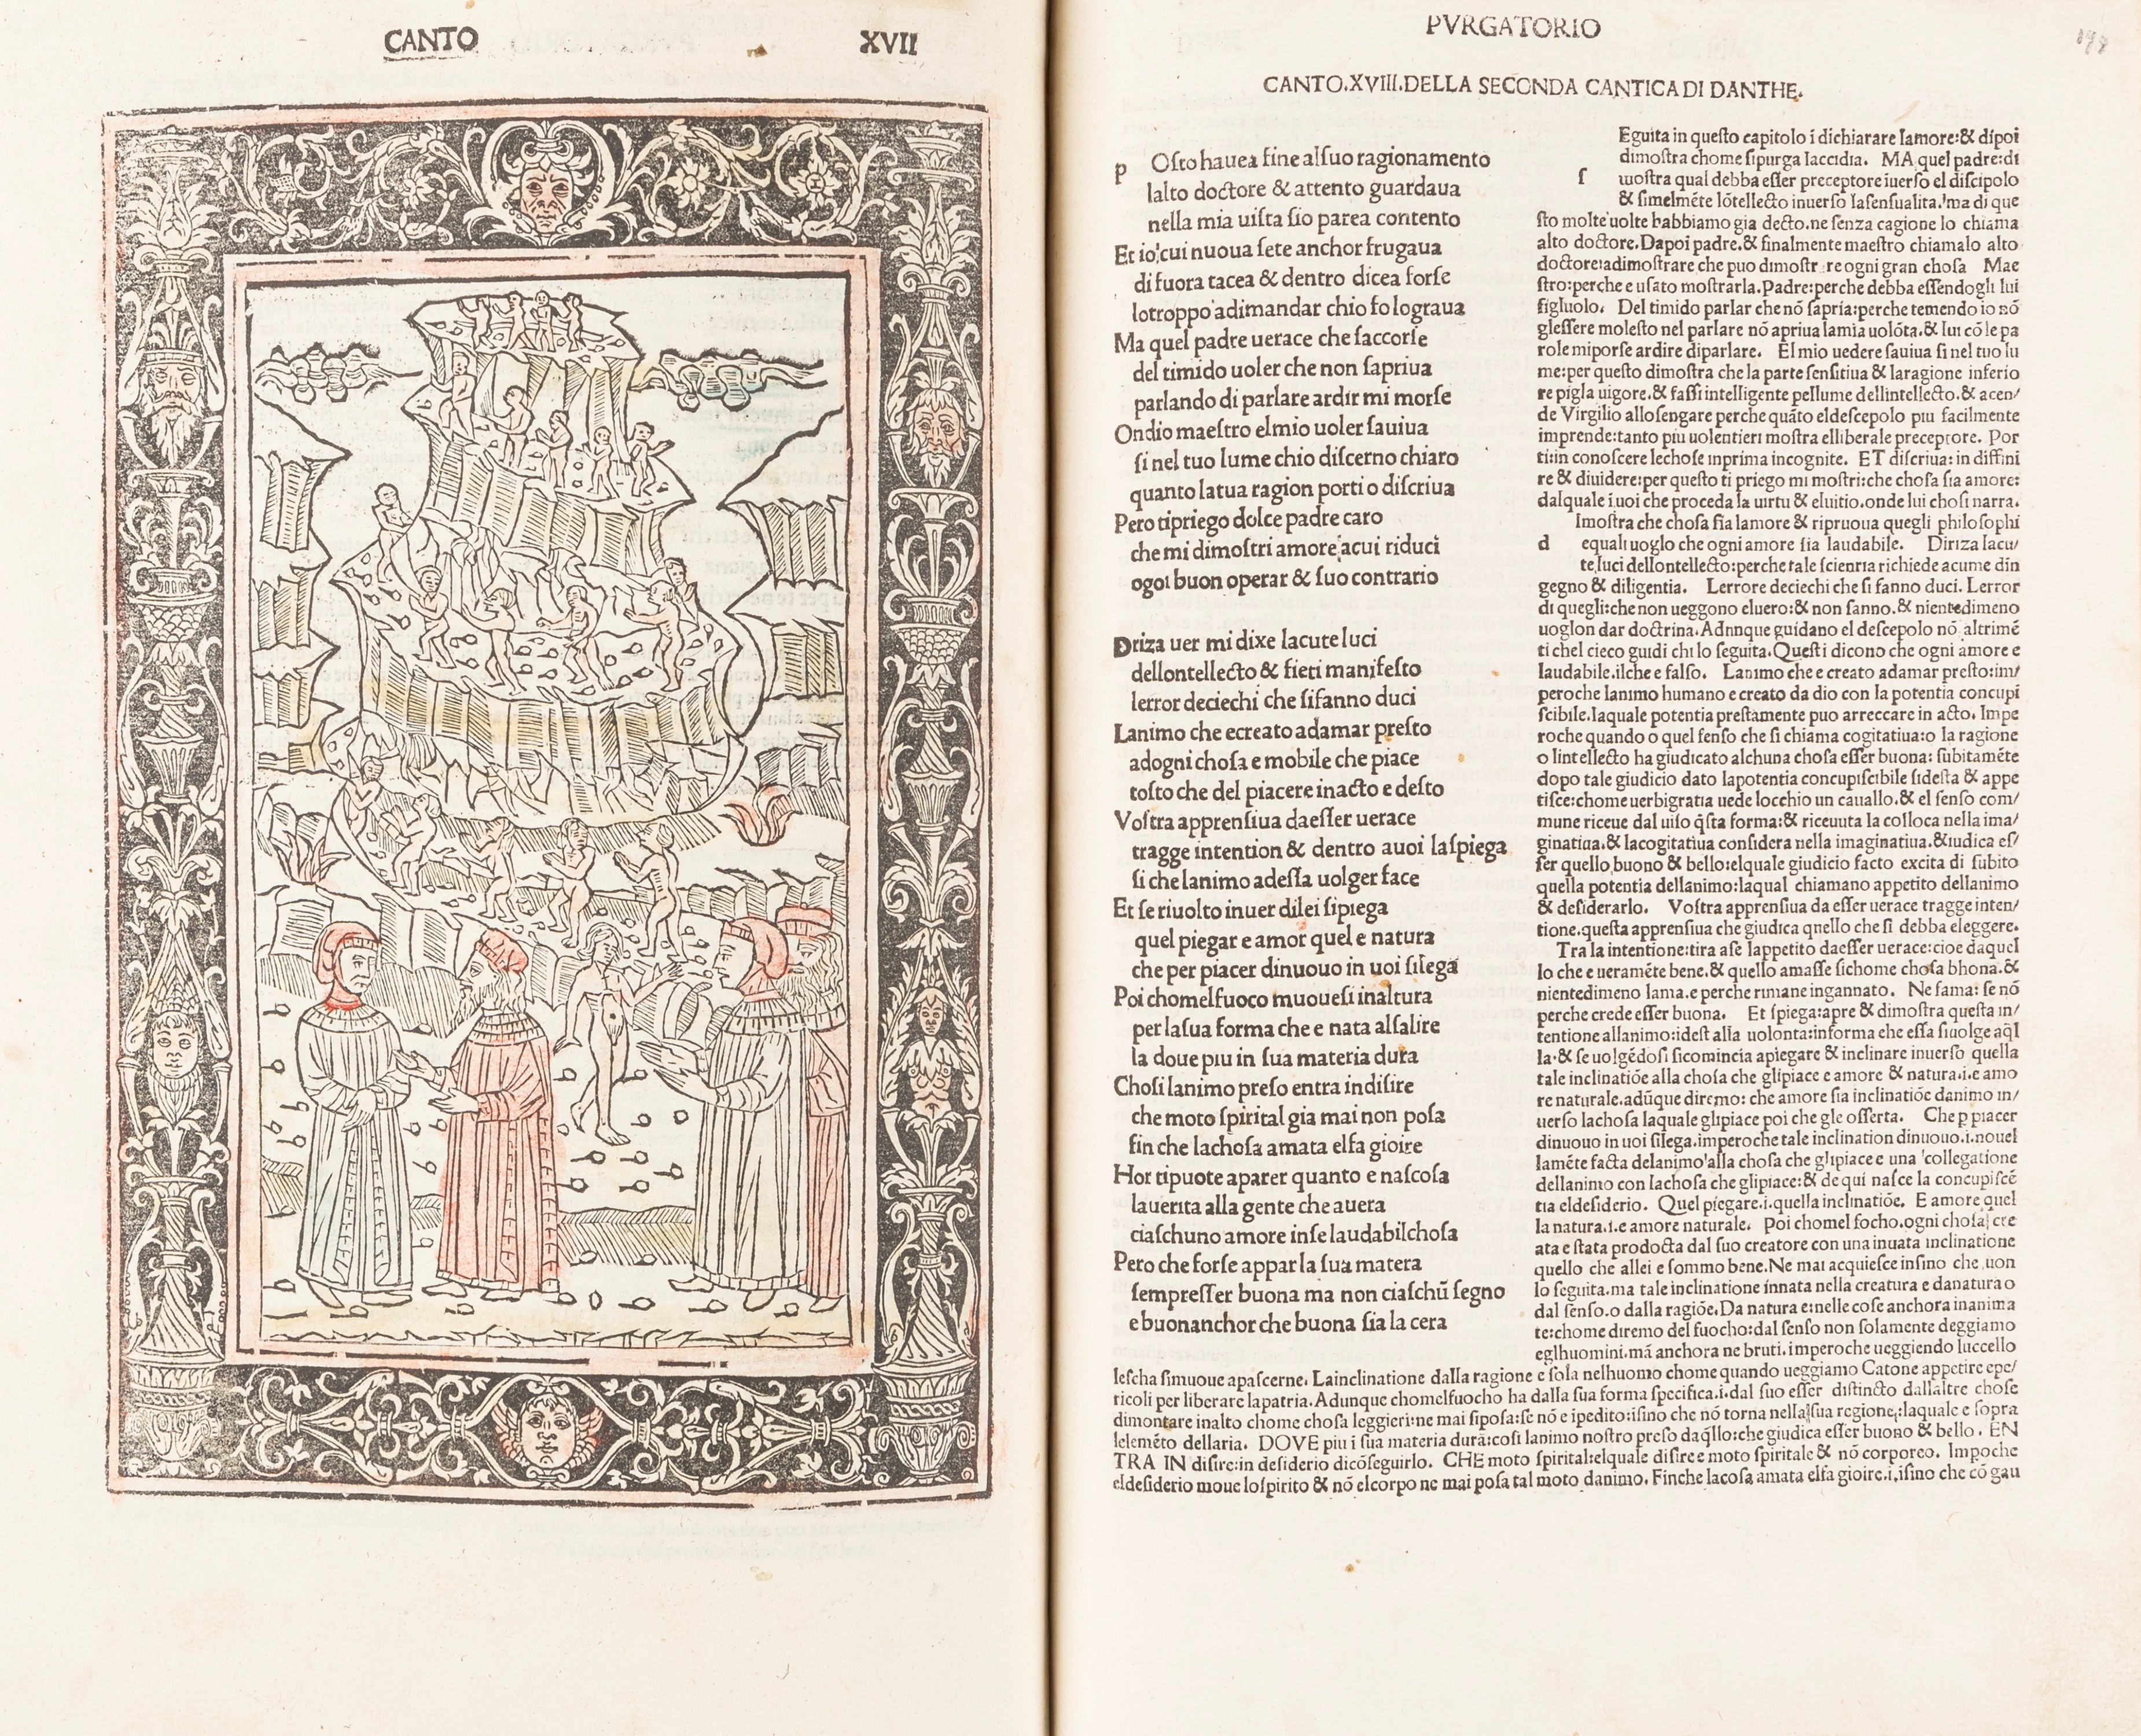 CANTO XVII
PVRGATORIO
198
CANTO.XVIII.DELLA SECONDA CANTICA DI DANTHE.
p Osto hauea fine alsuo ragionamento
lalto doctore & attento guardaua
nella mia uista sio parea contento
Et io cui nuoua sete anchor frugaua
di fuora tacea & dentro dicea forse
lotroppo adimandar chio fo lograua
Ma quel padre uerace che saccorse
del timido uoler che non sapriua
parlando di parlare ardir mi morse
Ondio maestro elmio uoler sauiua
si nel tuo lume chio discerno chiaro
quanto latua ragion porti o discriua
Pero tipriego dolce padre caro
che mi dimostri amore acui riduci
ogoi buon operar & suo contrario
Driza uer mi dixe lacute luci
dellontellecto & fieti manifesto
lerror deciechi che sifanno duci
Lanimo che ecreato adamar presto
adogni chosa e mobile che piace
tosto che del piacere inacto e desto
Vostra apprensiua daesser uerace
tragge intention & dentro auoi laspiega
si che lanimo adessa uolger face
Et se riuolto inuer dilei sipiega
quel piegar e amor quel e natura
che per piacer dinuouo in uoi silega
Poi chomelfuoco muouesi inaltura
per lasua forma che e nata alsalire
la doue piu in sua materia dura
Chosi lanimo preso entra indisire
che moto spirital gia mai non posa
fin che lachosa amata elfa gioire
Hor tipuote aparer quanto e nascosa
lauerita alla gente che auera
ciaschuno amore inse laudabilchosa
Pero che forse appar la sua matera
sempresser buona ma non ciaschū segno
e buonanchor che buona sia la cera
Eguita in questo capitolo i dichiarare lamore:& dipoi
dimostra chome sipurga laccidia. MA quel padre:di
s mostra qual debba esser preceptore iuerso el discipolo
& similmēte lōtellecto inuerso lasensualita. ma di que
sto molte uolte habbiamo gia decto.ne senza cagione lo chiama
alto doctore.Dapoi padre.& finalmente maestro chiamalo alto
doctore:adimostrare che puo dimostr re ogni gran chosa Mae
stro:perche e usato mostrarla.Padre:perche debba essendogli lui
figliuolo. Del timido parlar che nō sapria:perche temendo io nō
glessere molesto nel parlare nō apriua lamia uolōta.& lui cō le pa
role miporse ardire diparlare. El mio uedere sauiua si nel tuo lu
me:per questo dimostra che la parte sensitiua & laragione inferio
re pigla uigore.& fassi intelligente pellume dellintellecto.& acen/
de Virgilio allosengare perche quāto eldescepolo piu facilmente
imprende:tanto piu uolentieri mostra elliberale preceptore. Por
ti:in conoscere lechose inprima incognite. ET discriua: in diffini
re & diuidere:per questo ti priego mi mostri:che chosa sia amore:
dalquale i uoi che proceda la uirtu & eluitio.onde lui chosi narra.
Imostra che chosa sia lamore & ripruoua quegli philosophi
d equali uoglo che ogni amore sia laudabile. Diriza lacu/
te luci dellontellecto:perche tale scientia richiede acume din
gegno & diligentia. Lerrore deciechi che si fanno duci. Lerror
di quegli:che non ueggono eluero:& non sanno.& nientedimeno
uoglon dar doctrina.Adunque guidano el descepolo nō altrimē
ti chel cieco guidi chi lo seguita.Questi dicono che ogni amore e
laudabile.ilche e falso. Lanimo che e creato adamar presto:im/
peroche lanimo humano e creato da dio con la potentia concupi
scibile.laquale potentia prestamente puo arreccare in acto. Impe
roche quando o quel senso che si chiama cogitatiua:o la ragione
o lintellecto ha giudicato alchuna chosa esser buona: subitamēte
dopo tale giudicio dato lapotentia concupiscibile sidesta & appe
tisce:chome uerbigratia uede locchio un cauallo.& el senso com/
mune riceue dal uiso q̄sta forma:& riceuuta la colloca nella ima/
ginatiua.& lacogitatiua considera nella imaginatiua.&iudica es/
ser quello buono & bello:elquale giudicio facto excita di subito
quella potentia dellanimo:laqual chiamano appetito dellanimo
& desiderarlo. Vostra apprensiua da esser uerace tragge inten/
tione.questa apprensiua che giudica quello che si debba eleggere.
Tra la intentione:tira ase lappetito daesser uerace:cioe daquel
lo che e ueramēte bene.& quello amasse sichome chosa bhona.&
nientedimeno lama.e perche rimane ingannato. Ne fama: se nō
perche crede esser buona. Et spiega:apre & dimostra questa in/
tentione allanimo:idest alla uolonta:informa che essa siuolge aq̄l
la.& se uolgēdosi sicomincia apiegare & inclinare inuerso quella
tale inclinatiōe alla chosa che glipiace e amore & natura.i.e amo
re naturale.adūque diremo: che amore sia inclinatiōe danimo in/
uerso lachosa laquale glipiace poi che gle offerta. Che p piacer
dinuouo in uoi silega.imperoche tale inclination dinuouo.i.nouel
lamēte facta delanimo alla chosa che glipiace e una collegatione
dellanimo con lachosa che glipiace:& de qui nasce la concupiscē
tia eldesiderio. Quel piegare.i.quella inclinatiōe. E amore quel
la natura.i.e amore naturale. Poi chomel focho.ogni chosa cre
ata e stata prodocta dal suo creatore con una inuata inclinatione
quello che allei e sommo bene.Ne mai acquiesce insino che non
lo seguita.ma tale inclinatione innata nella creatura e danatura o
dal senso.o dalla ragiōe.Da natura e:nelle cose anchora inanima
te:chome diremo del fuocho:dal senso non solamente deggiamo
eglhuomini.mā anchora ne bruti.imperoche ueggiendo luccello
lescha simuoue apascerne. Lainclinatione dalla ragione e sola nelhuomo chome quando ueggiamo Catone appetire epe/
ricoli per liberare lapatria.Adunque chomelfuocho ha dalla sua forma specifica.i.dal suo esser distincto dallaltre chose
dimontare inalto chome chosa leggieri:ne mai siposa:se nō e ipedito:isino che nō torna nella sua regione:laquale e sopra
lelemēto dellaria. DOVE piu i sua materia dura:cosi lanimo nostro preso daq̄llo:che giudica esser buono & bello. EN
TRA IN disire:in desiderio dicōseguirlo. CHE moto spirital:elquale disire e moto spiritale & nō corporeo. Impoche
eldesiderio moue lospirito & nō elcorpo ne mai posa tal moto danimo. Finche lacosa amata elfa gioire.i.isino che cō gau